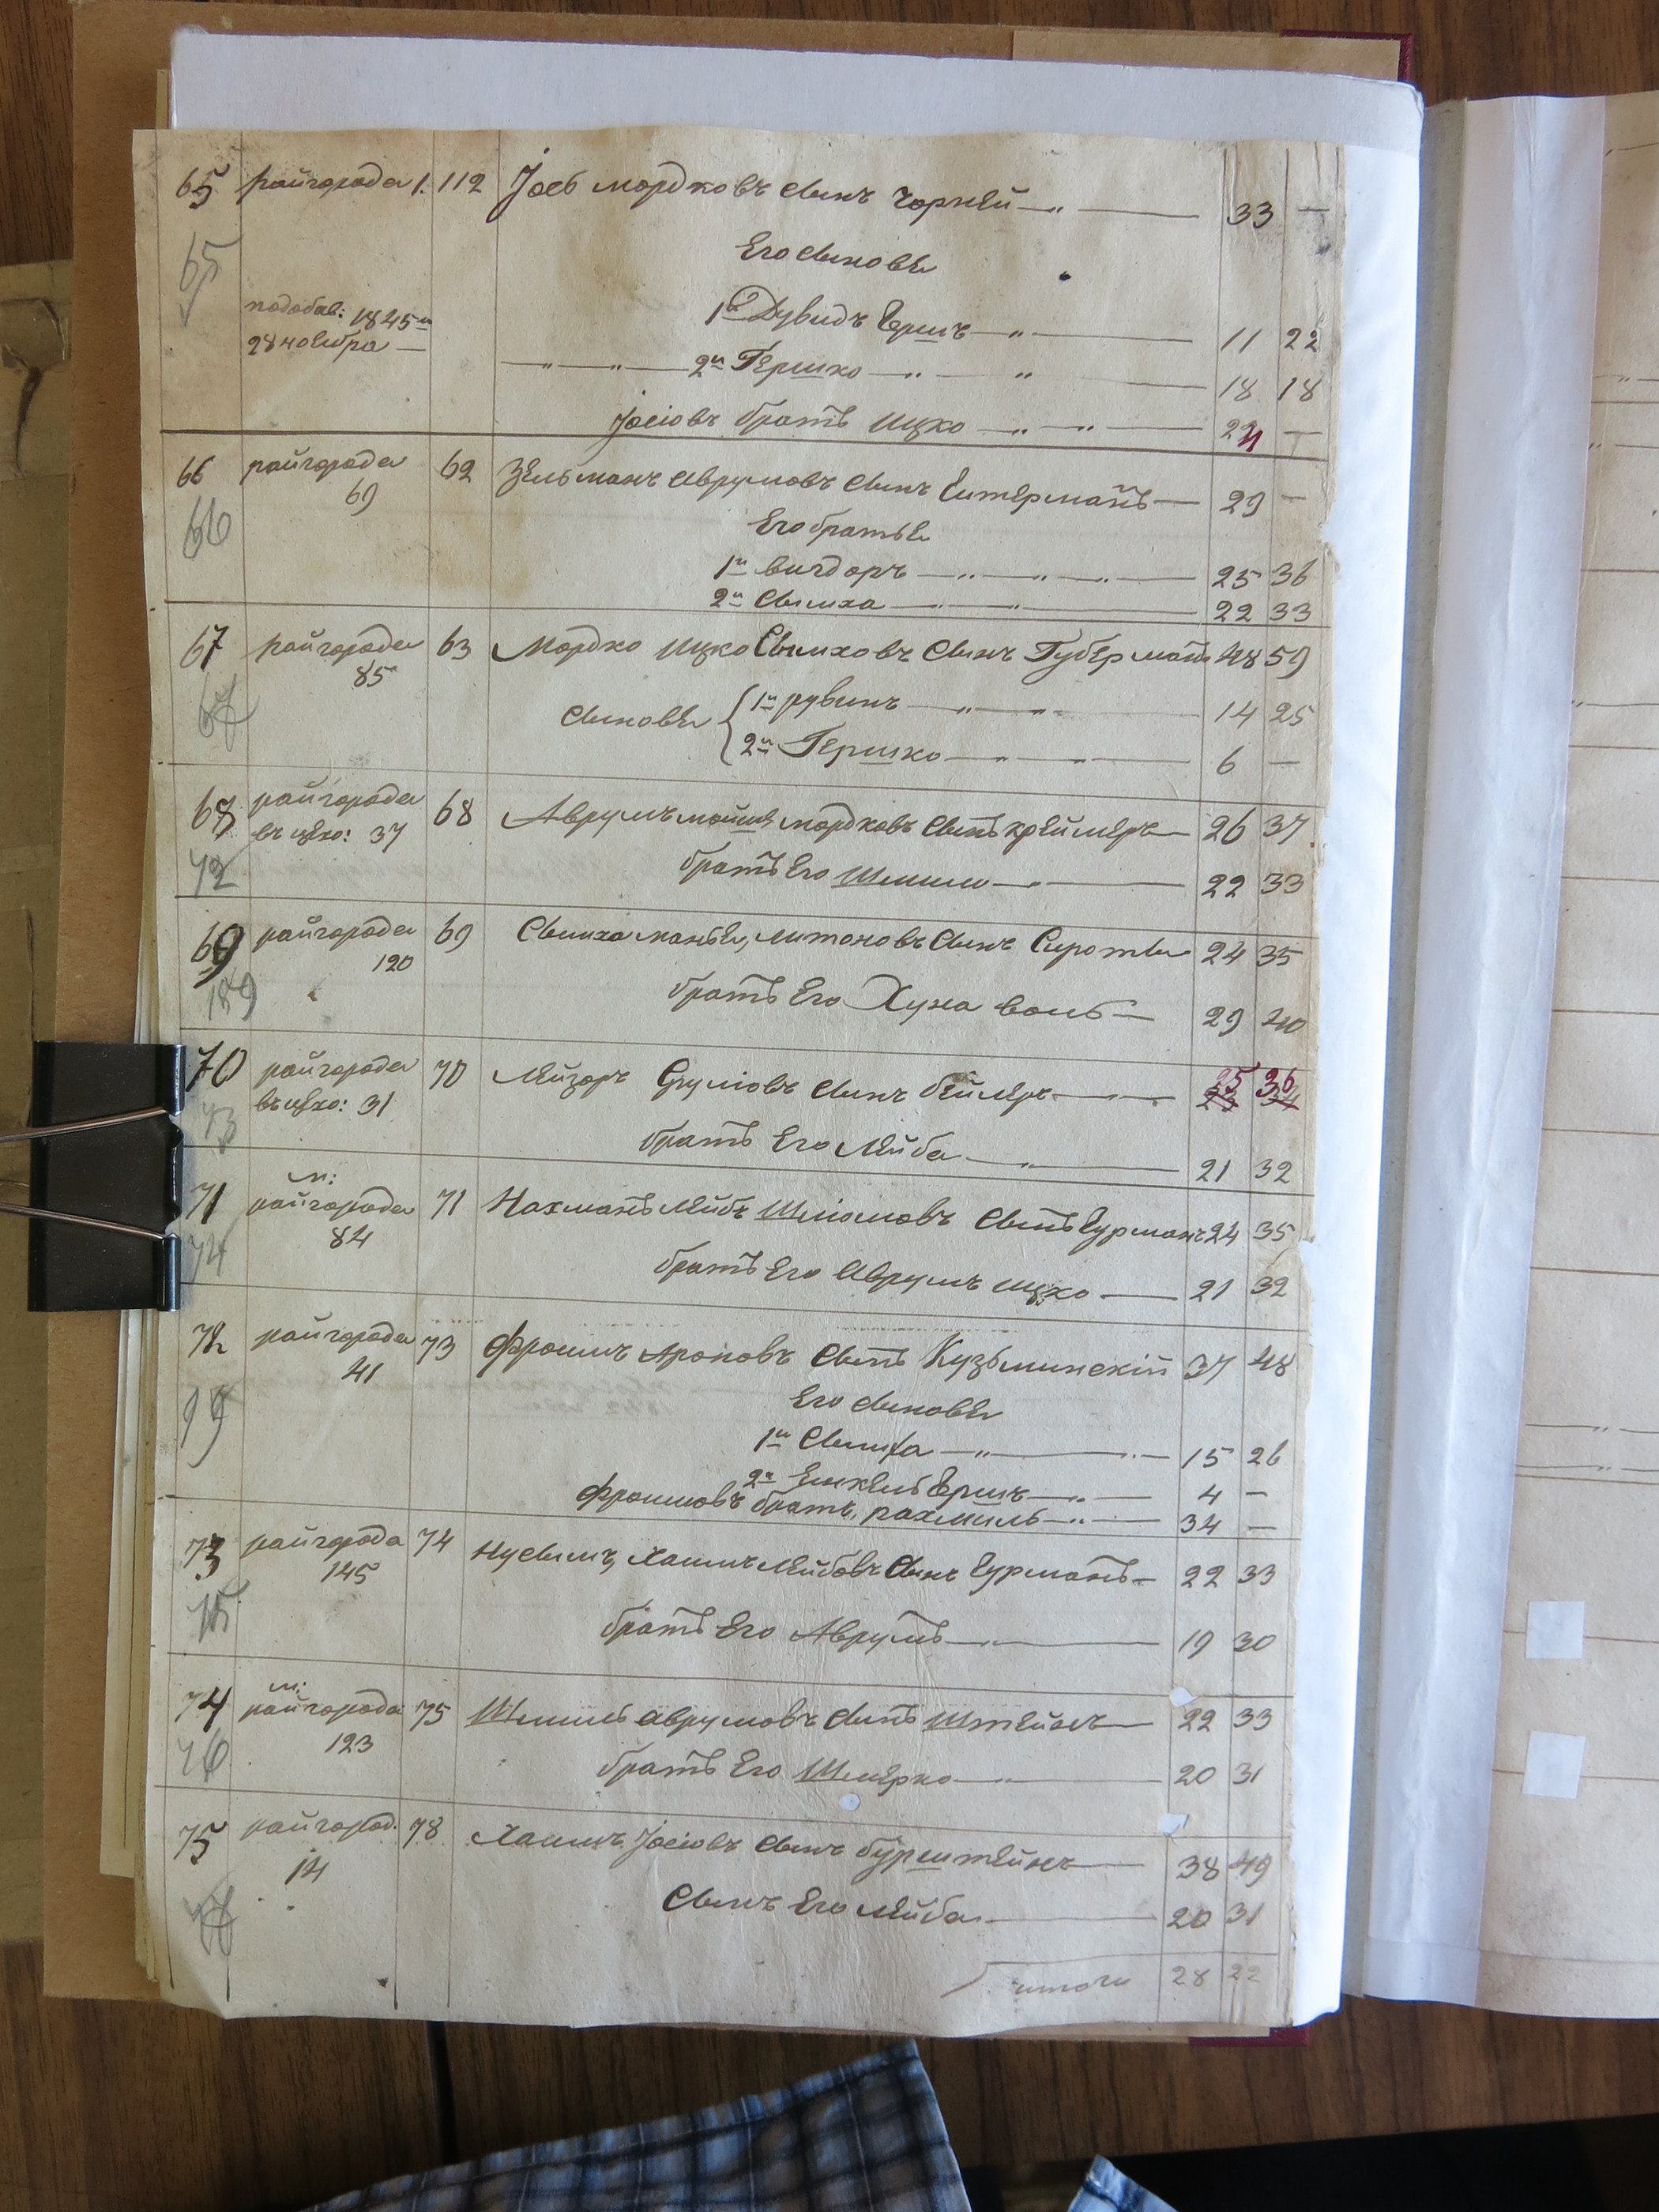 65 райгорода 1. 112 Јосъ мордковъ сынъ Чорней 33 —
65
Его сыновья
подобав: 1845го 1й Дувидъ Герш 11 22
28 ноября 2й Гершко 18 18
Јосіовъ братъ Ицко 24 —
66 райгорода 62 Зельманъ Аврумовъ сынъ Гитерманъ 29 —
69
66
Его братья
1й вигдоръ 25 36
2й Сымха 22 33
67 райгорода 63 Мордко Ицко Сымховъ сынъ Губерманъ 48 59
85
67
сыновья 1й рувинъ 14 25
2й Гершко 6 —
68 райгорода 68 Аврумъ мошко мордковъ сынъ креймеръ 26 37
въ цехо: 37
72
братъ Его Шмиль 22 33
69 райгорода 69 Сымха манья, митоновъ сынъ Сирота 24 35
120
189
братъ Его Хуна вольъ 29 40
70 райгорода 70 Лейзоръ Сруліовъ сынъ беймеръ 25 36
въ цехо: 31 23 34
73
братъ Его Лейба 21 32
м:
71 райгорода 71 Нахманъ Лейбъ Шліомовъ сынъ Гурманъ 24 35
84
74
братъ Его Аврумъ ицко 21 32
72 райгорода 73 Фроимъ Ароновъ сынъ Кузьминскій 37 48
41
Его сыновья
99
1й Сымха 15 26
2й Янкель Герш 4 —
Фроимовъ братъ, рахмиль 34 —
73 райгорода 74 Нусымъ, Хаимъ Лейбовъ сынъ Гурманъ 22 33
145
75
братъ Его Аврумъ 19 30
м:
74 райгорода 75 Шмиль аврумовъ сынъ Штейнъ 22 33
123
76
братъ Его Шмерко 20 31
75 райгород. 78 Хаимъ Јосіовъ сынъ бурштейнъ 38 49
14
77
Сынъ Его Лейба 20 31
итого 28 22